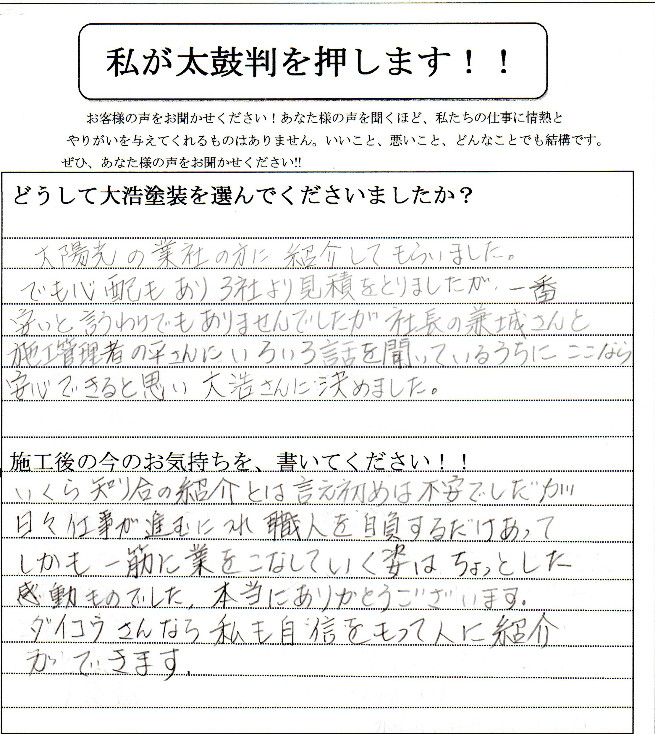 私が太鼓判を押します！！
お客様の声をお聞かせください！あなた様の声を聞くほど、私たちの仕事に情熱と
やりがいを与えてくれるものはありません。いいこと、悪いこと、どんなことでも結構です。
ぜひ、あなた様の声をお聞かせください!!
どうして大浩塗装を選んでくださいましたか？
太陽光の業社の方に紹介してもらいました。
でも心配もあり3社より見積をとりましたが、一番
安いと言うわけでもありませんでしたが社長の兼城さんと
施工管理者の平さんにいろいろ話を聞いているうちにここなら
安心できると思い大浩さんに決めました。
施工後の今のお気持ちを、書いてください！！
いくら知り合の紹介とは言え初めは不安でしたが
日々仕事が進むにつれ職人を自負するだけあって
しかも一筋に業をこなしていく姿はちょっとした
感動ものでした。本当にありがとうございます。
ダイコウさんなら私も自信をもって人に紹介
ができます。